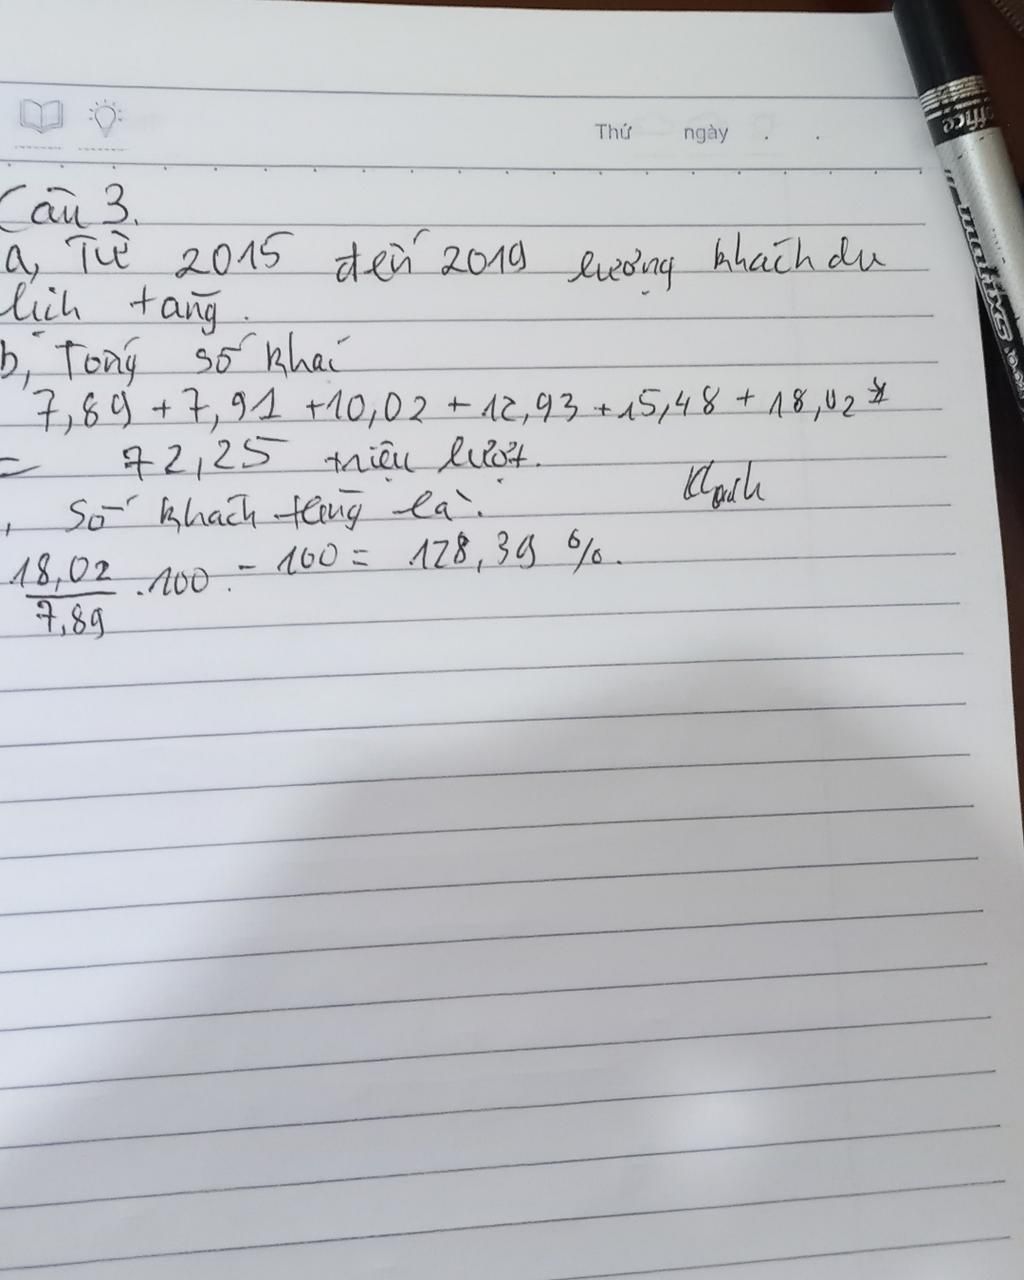 Thứ ngày . .
Câu 3.
a, Từ 2015 đến 2019 lượng khách du
lịch tăng.
b, Tổng số khác
7,89 + 7,91 + 10,02 + 12,93 + 15,48 + 18,02
= 72,25 triệu lượt.
, Số khách tăng là:
18,02/7,89 . 100 - 100 = 128,39 %.
office